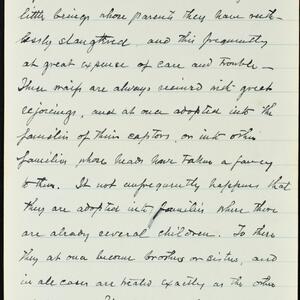 little beings whose parents they have ruth-
lessly slaughtered, and this frequently
at great expense of care and trouble—
These waifs are always received with great
rejoicings, and at once adopted into the
families of their captors, or into other
families whose heads have taken a fancy
to them. It not unfrequently happens that
they are adopted into families where there
are already several children. To these
they at once become brothers or sisters, and
in all cases are treated exactly as the other